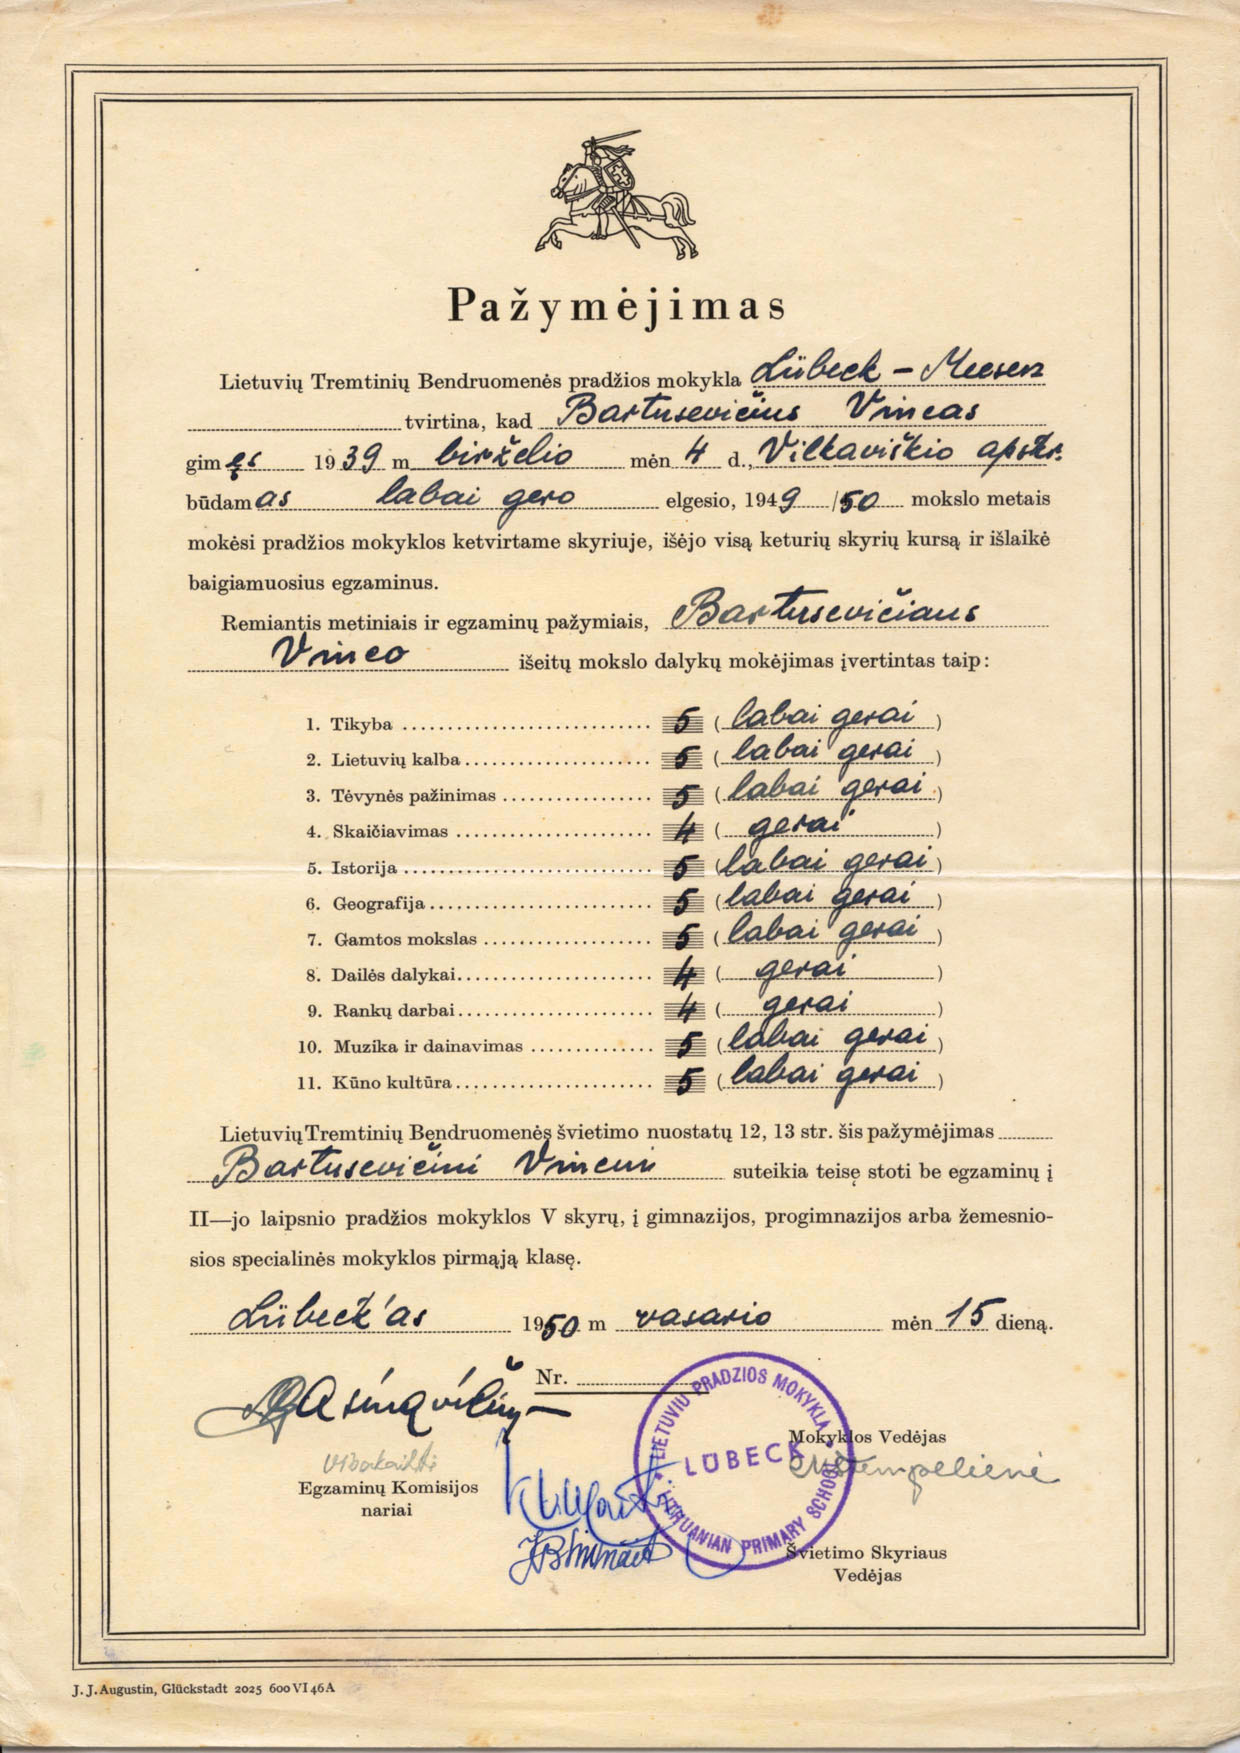 Pažymėjimas
Lietuvių Tremtinių Bendruomenės pradžios mokykla Lübeck - Meesen
tvirtina, kad Bartusevičius Vincas
gimęs 1939 m birželio mėn 4 d., Vilkaviškio apskr.
būdamas labai gero elgesio, 1949/50 mokslo metais
mokėsi pradžios mokyklos ketvirtame skyriuje, išėjo visą keturių skyrių kursą ir išlaikė
baigiamuosius egzaminus.
Remiantis metiniais ir egzaminų pažymiais, Bartusevičiaus
Vinco išeitų mokslo dalykų mokėjimas įvertintas taip:
1. Tikyba 5 (labai gerai)
2. Lietuvių kalba 5 (labai gerai)
3. Tėvynės pažinimas 5 (labai gerai)
4. Skaičiavimas 4 (gerai)
5. Istorija 5 (labai gerai)
6. Geografija 5 (labai gerai)
7. Gamtos mokslas 5 (labai gerai)
8. Dailės dalykai 4 (gerai)
9. Rankų darbai 4 (gerai)
10. Muzika ir dainavimas 5 (labai gerai)
11. Kūno kultūra 5 (labai gerai)
Lietuvių Tremtinių Bendruomenės švietimo nuostatų 12, 13 str. šis pažymėjimas
Bartusevičiui Vincui suteikia teisę stoti be egzaminų į
II—jo laipsnio pradžios mokyklos V skyrų, į gimnazijos, progimnazijos arba žemesnio-
sios specialinės mokyklos pirmąją klasę.
Lübeck'as 1950 m vasario mėn 15 dieną.
Nr.
LIETUVIU PRADZIOS MOKYKLA
LÜBECK
LITHUANIAN PRIMARY SCHOOL
Mokyklos Vedėjas
Egzaminų Komisijos
nariai
Švietimo Skyriaus
Vedėjas
J. J. Augustin, Glückstadt 2025 600 VI 46 A